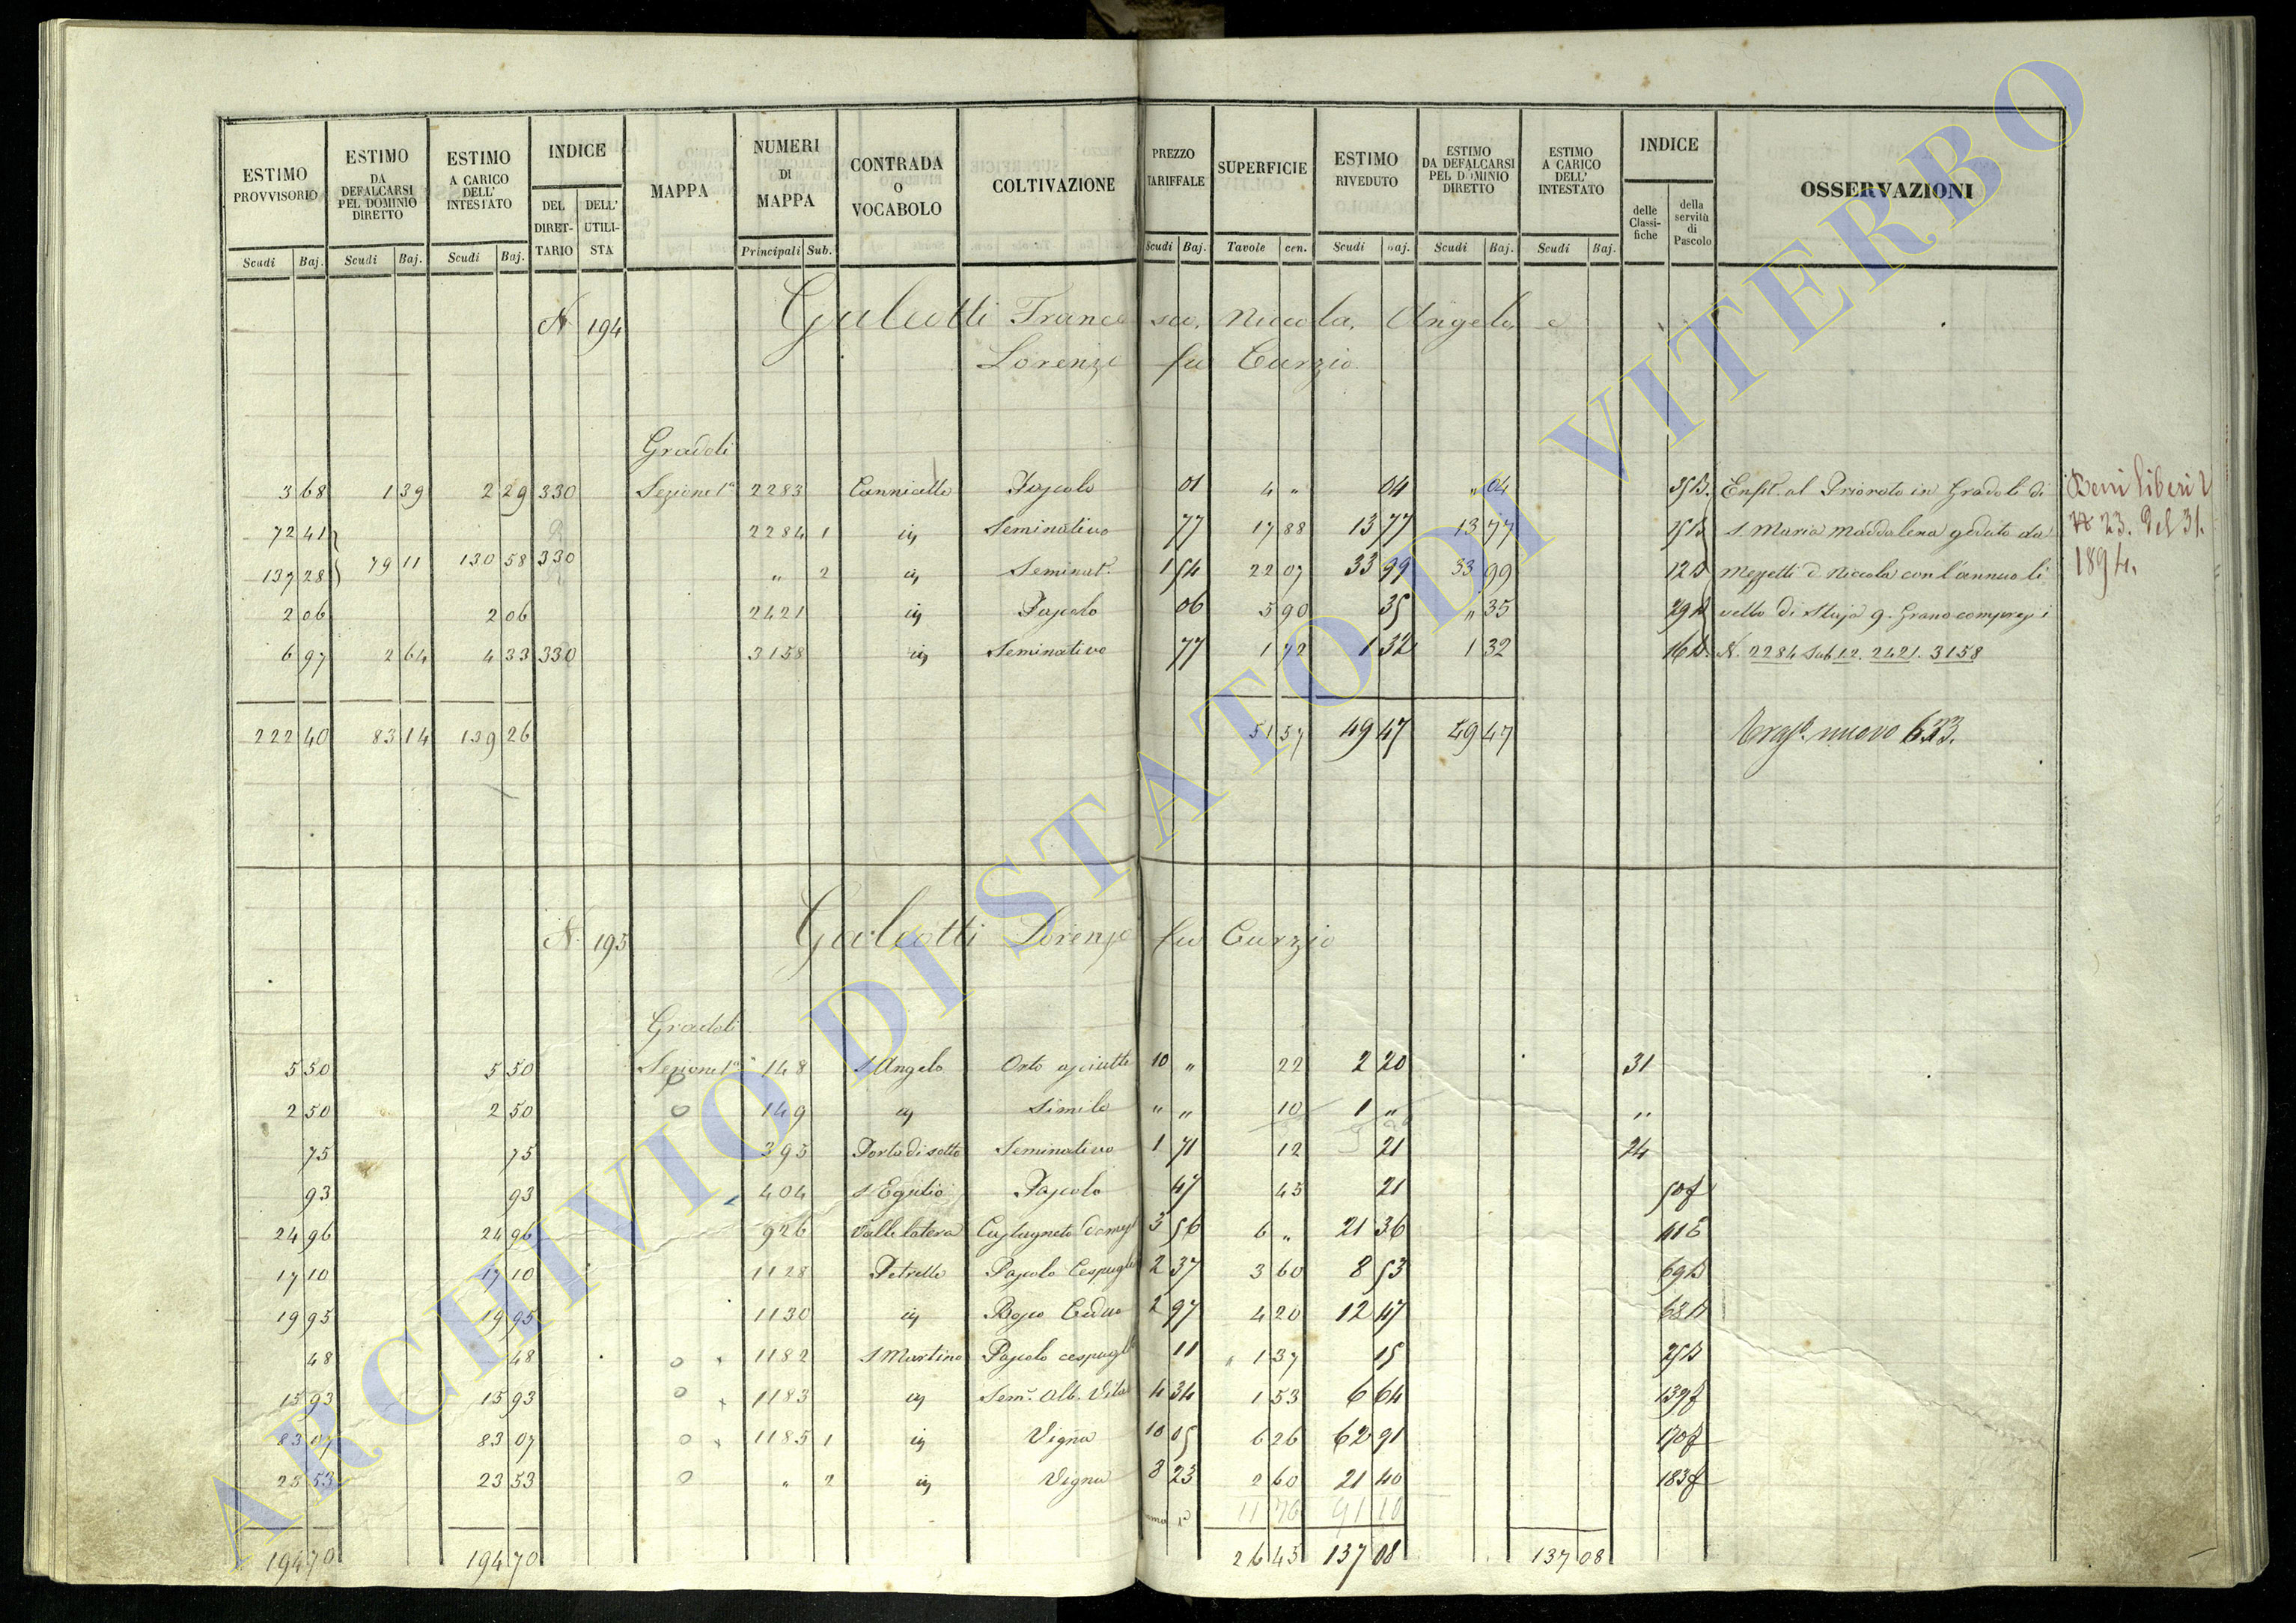 ESTIMO PROVVISORIO | ESTIMO DA DEFALCARSI PEL DOMINIO DIRETTO | ESTIMO A CARICO DELL' INTESTATO | INDICE | MAPPA | NUMERI DI MAPPA | CONTRADA O VOCABOLO | COLTIVAZIONE | PREZZO TARIFFALE | SUPERFICIE | ESTIMO RIVEDUTO | ESTIMO DA DEFALCARSI PEL DOMINIO DIRETTO | ESTIMO A CARICO DELL' INTESTATO | INDICE | OSSERVAZIONI
DEL DIRETTARIO | DELL' UTILISTA | delle Classifiche | della servitù di Pascolo
Scudi Baj. | Scudi Baj. | Scudi Baj. | Principali Sub. | Scudi Baj. | Tavole cen. | Scudi Baj. | Scudi Baj. | Scudi Baj.
N. 194 Galeotti Francesco, Niccola, Angelo, e
Lorenzo fu Curzio
Gradoli
3 68 | 1 39 | 2 29 | 330 | Sezione 1a | 2283 | Cannicelle | Pascolo | 01 | 4 " | 04 | " 04 | Enfit. al Priorato in Gradoli di
72 41 | 2284 1 | id | Seminativo | 77 | 17 88 | 13 77 | 13 77 | S. Maria Maddalena goduto da
137 28 | 79 11 | 130 58 | 330 | " 2 | id | Seminat. | 1 54 | 22 07 | 33 99 | 33 99 | 12 | Mezzetti D. Niccola con l'annuo li
2 06 | 2 06 | 2421 | id | Pascolo | 06 | 5 90 | 35 | " 35 | 29 | vello di Staja 9. Grano compresi i
6 97 | 2 64 | 4 33 | 330 | 3158 | id | Seminativo | 77 | 1 72 | 1 32 | 1 32 | 16 | N. 2284 Sub 1.2. 2421. 3158
222 40 | 83 14 | 139 26 | 51 57 | 49 47 | 49 47 | nuovo 633.
Beni liberi
23. del 31.
1894.
N. 195 Galeotti Lorenzo fu Curzio
Gradoli
5 50 | 5 50 | Sezione 1a | 148 | S Angelo | Orto asciutto | 10 " | 22 | 2 20 | 31
2 50 | 2 50 | 149 | id | Simile | " " | 10 | 1 " | "
75 | 75 | 395 | Porta di sotto | Seminativo | 1 71 | 12 | 21 | 24
93 | 93 | 404 | S Egidio | Pascolo | 47 | 45 | 21 | 50
24 96 | 24 96 | 926 | Valle latera | Castagneto | 3 56 | 6 " | 21 36
17 10 | 17 10 | 1128 | Petrella | Pascolo Cespugl | 2 37 | 3 60 | 8 53 | 69
19 95 | 19 95 | 1130 | id | Bosco Ceduo | 2 97 | 4 20 | 12 47 | 68
48 | 48 | 1182 | S Martino | Pascolo cespugl | 11 | " 1 37 | 15 | 25
15 93 | 15 93 | 1183 | id | Sem. Alb. Vitat | 4 34 | 1 53 | 6 64 | 139
83 07 | 83 07 | 1185 1 | id | Vigna | 10 05 | 6 26 | 62 91 | 170
23 53 | 23 53 | " 2 | id | Vigna | 8 23 | 2 60 | 21 40 | 183
11 76 | 91 10
194 70 | 194 70 | 26 45 | 137 08 | 137 08
ARCHIVIO DI STATO DI VITERBO